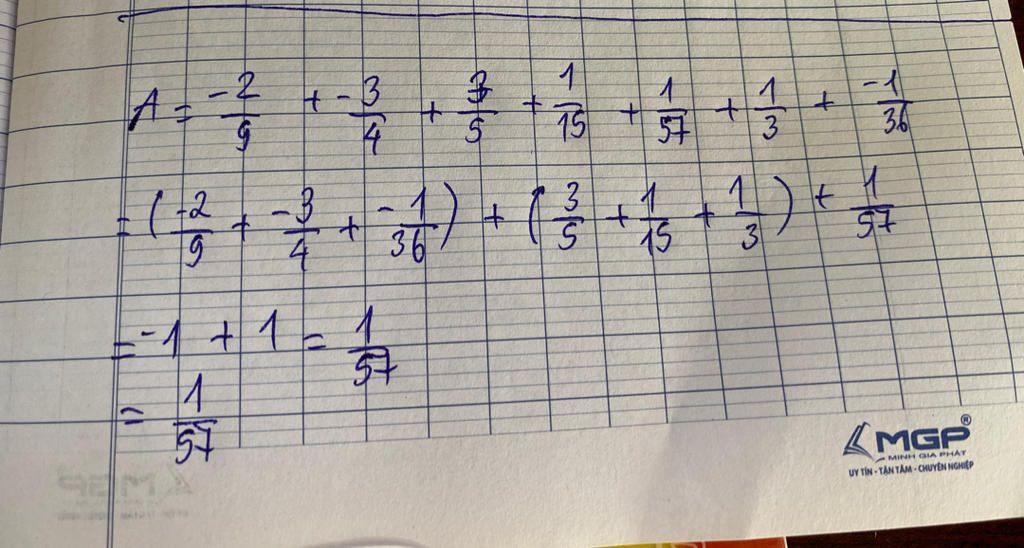 A = -2/9 + -3/4 + 3/5 + 1/15 + 1/57 + 1/3 + -1/36
= (-2/9 + -3/4 + -1/36) + (3/5 + 1/15 + 1/3) + 1/57
= -1 + 1 = 1/57
= 1/57
MGP®
MINH GIA PHÁT
UY TÍN - TẬN TÂM - CHUYÊN NGHIỆP